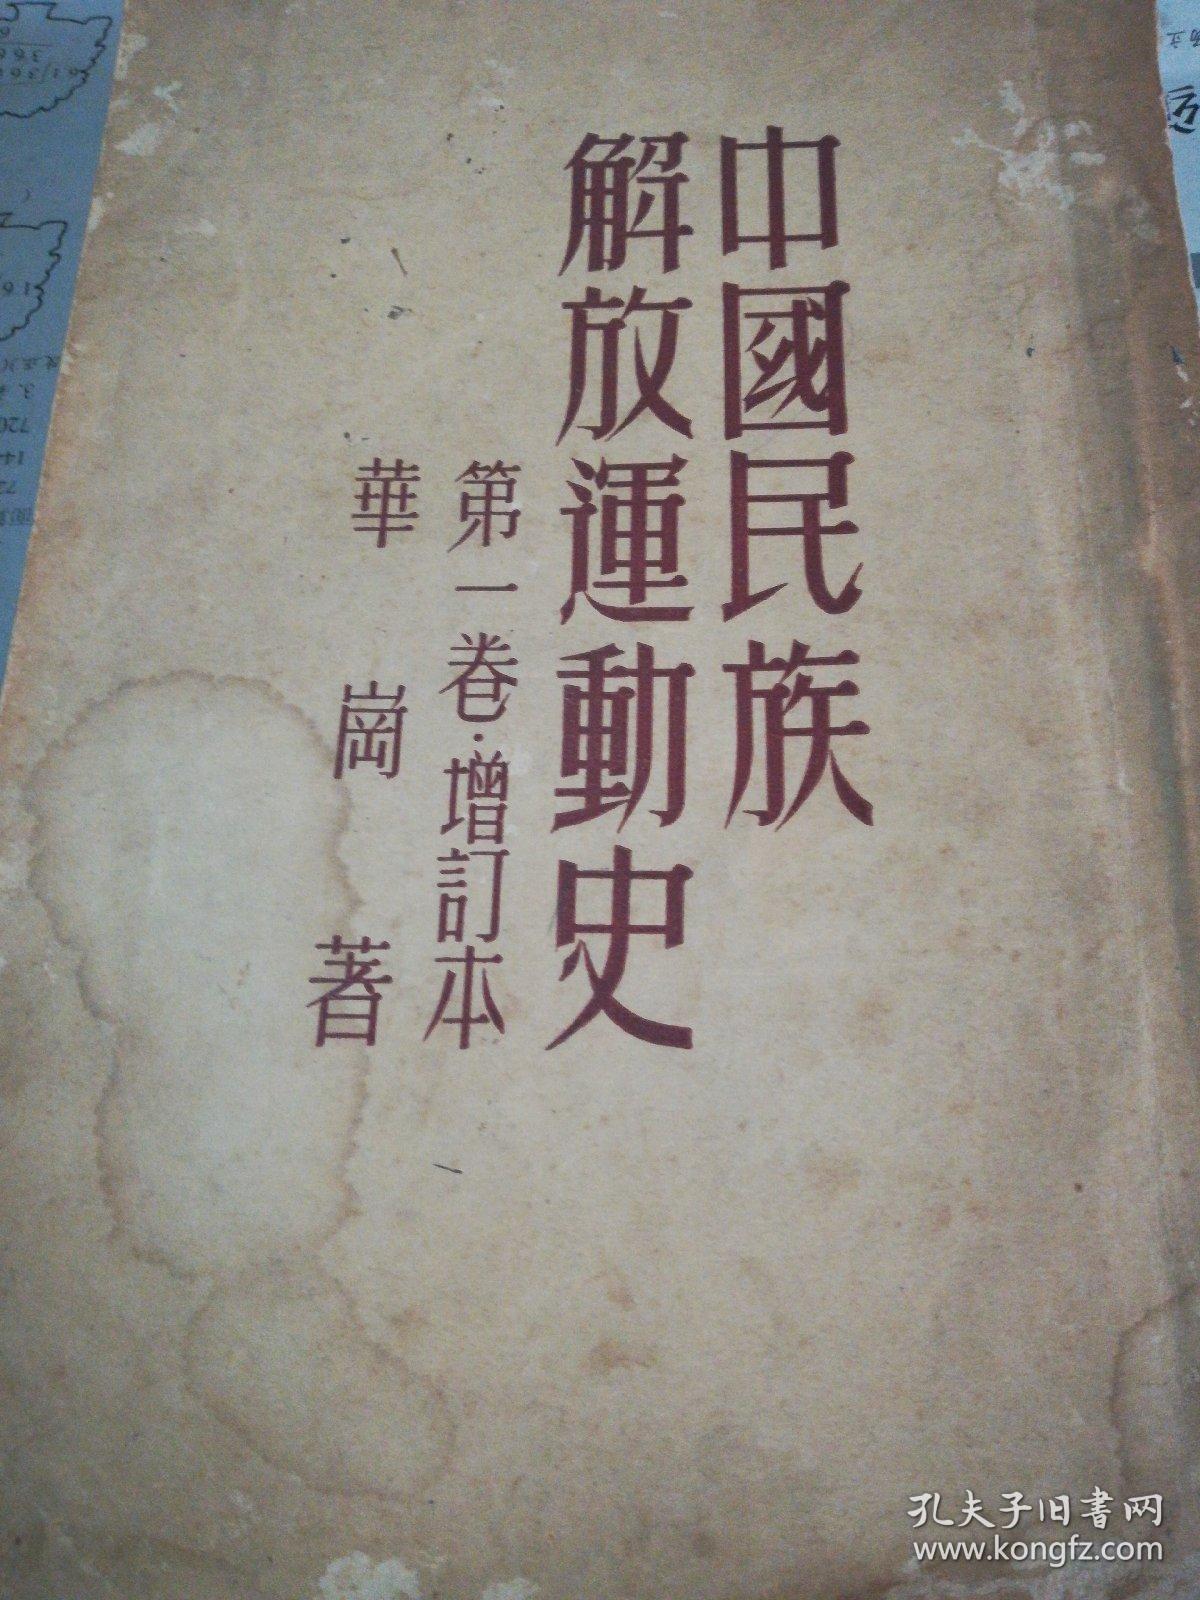 中國民族
解放運動史
第一卷·增訂本
華崗著
孔夫子旧書网
www.kongfz.com